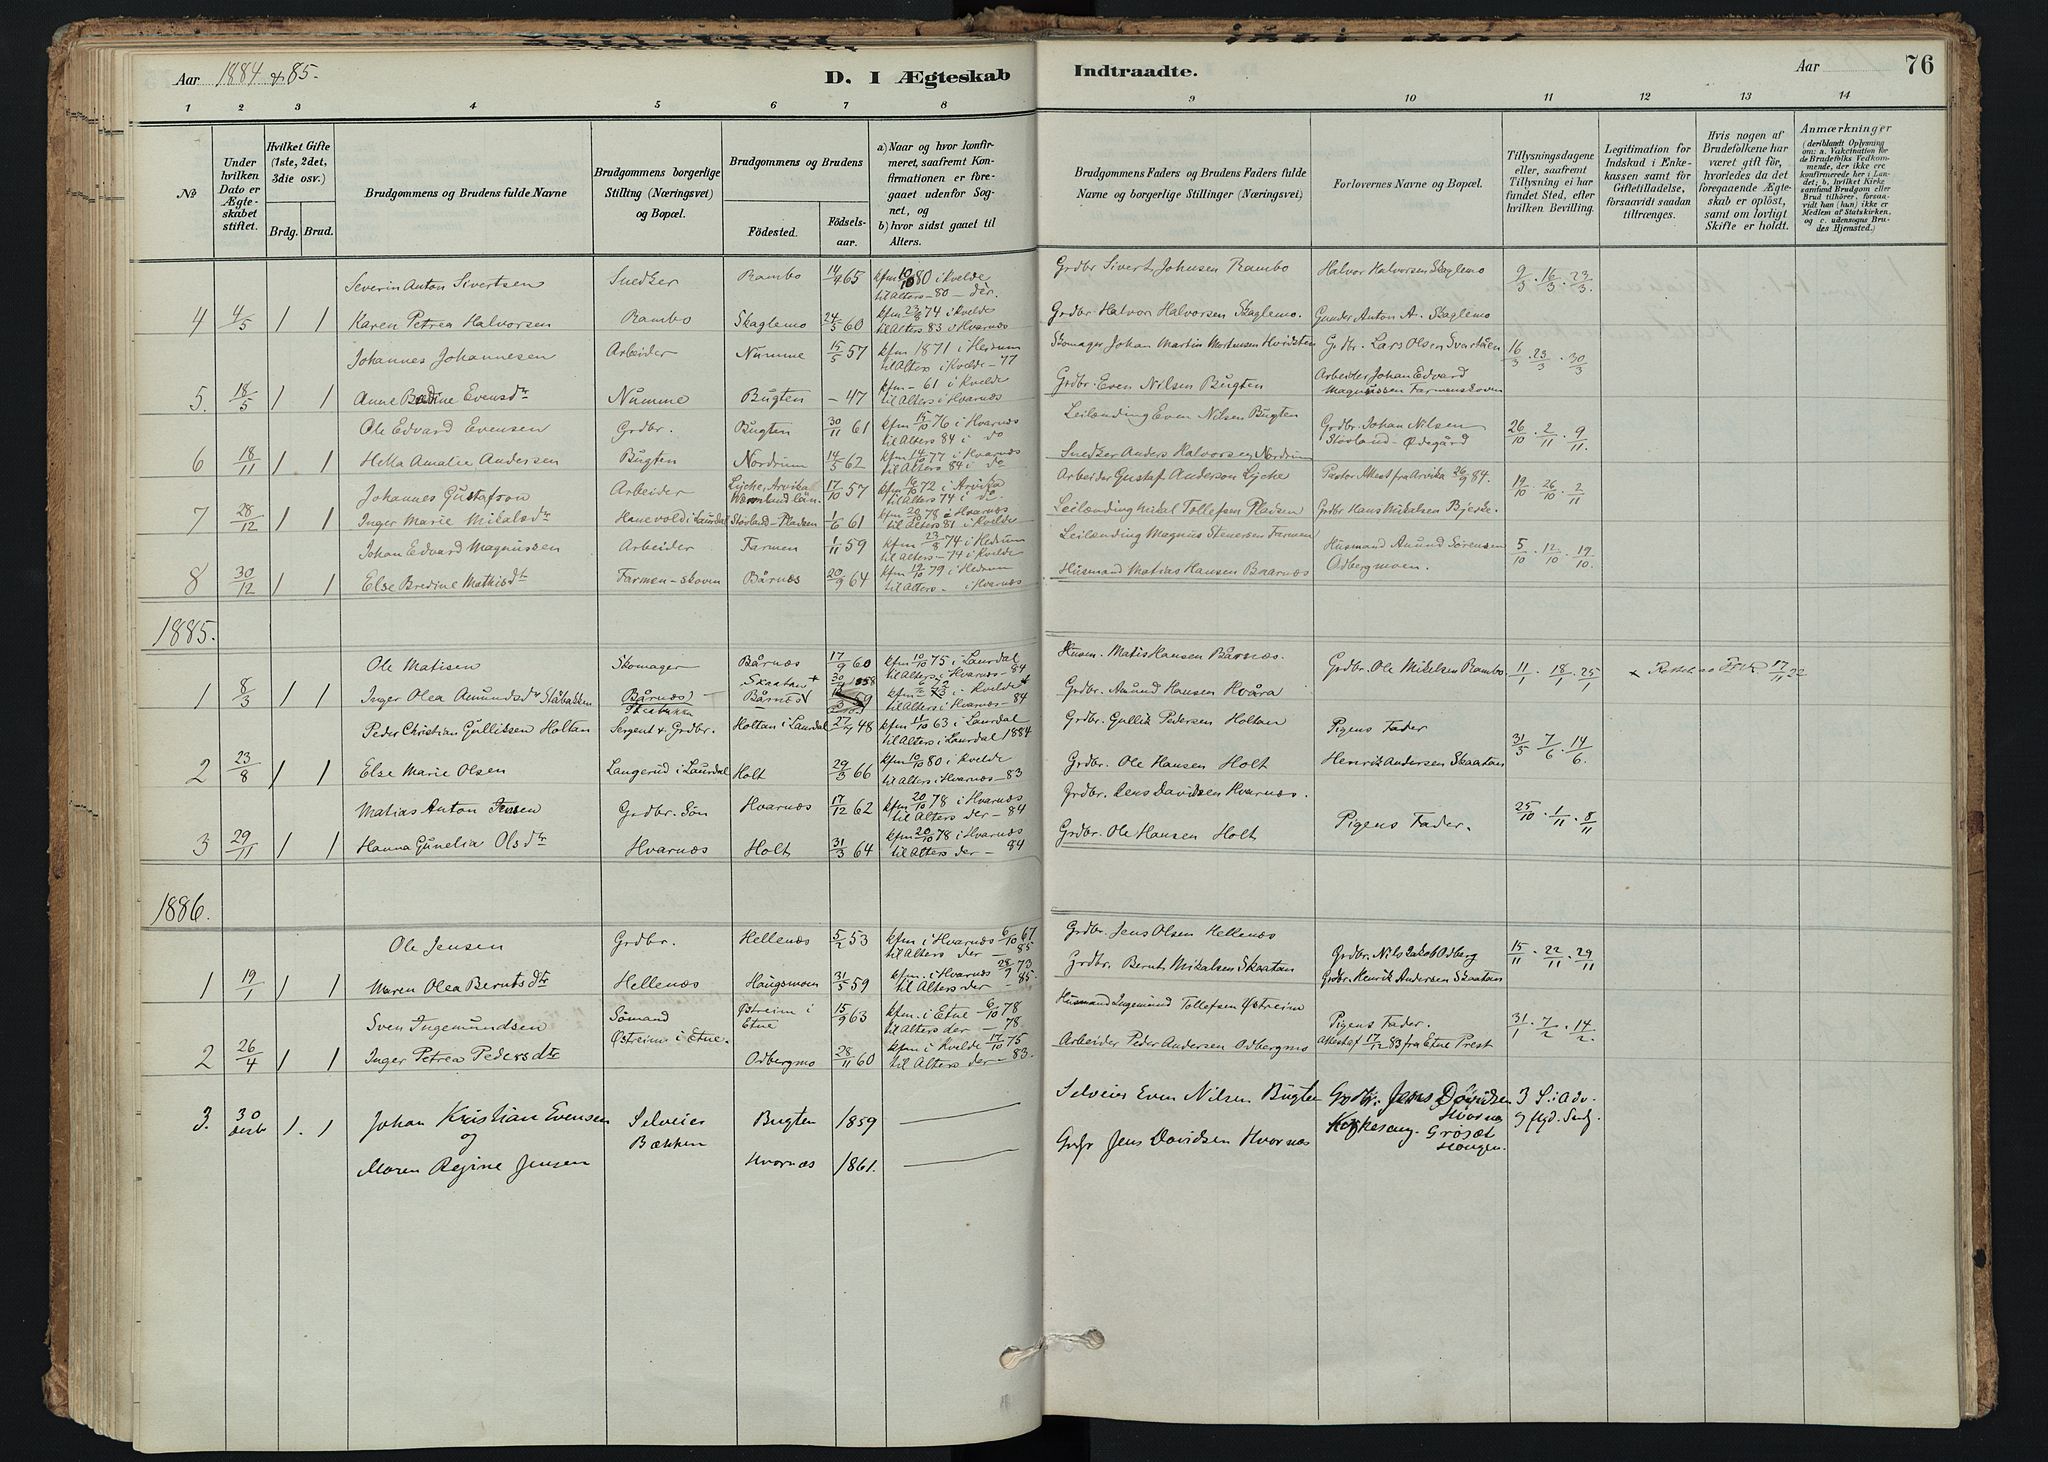 Aar 1884 & 85.
D. I Ægteskab Indtraadte.
Aar
76
1 2 3 4 5 6 7 8 9 10 11 12 13 14
№
Under hvilken Dato er Ægteskabet stiftet.
Hvilket Gifte (1ste, 2det, 3die osv.)
Brdg. Brud.
Brudgommens og Brudens fulde Navne
Brudgommens borgerlige Stilling (Næringsvei) og Bopæl.
Brudgommens og Brudens
Fødested. Fødselsaar.
a) Naar og hvor konfirmeret, saafremt Konfirmationen er foregaaet udenfor Sognet, og
b) hvor sidst gaaet til Alters.
Brudgommens Faders og Brudens Faders fulde Navne og borgerlige Stillinger (Næringsvei)
Forlovernes Navne og Bopæl.
Tillysningsdagene eller, saafremt Tillysning ei har fundet Sted, efter hvilken Bevilling.
Legitimation for Indskud i Enkekassen samt for Giftetilladelse, forsaavidt saadan tiltrænges.
Hvis nogen af Brudefolkene har været gift før, hvorledes da det foregaaende Ægteskab er opløst, samt om lovligt Skifte er holdt.
Anmærkninger (deriblandt Oplysning om: a. Vakcination for de Brudefolks Vedkommende, der ikke ere konfirmerede her i Landet; b, hvilket Kirkesamfund Brudgom eller Brud tilhører, forsaavidt han (hun) ikke er Medlem af Statskirken, og c. udensogns Brudes Hjemsted.)
Severin Anton Sivertsen Snedker Rambo 14/4 65 kfm 10/10 80 i Kvelde til Alters - 80 - der. Grdbr Sivert Johnsen Rambo Halvor Halvorsen Skaglemo 9/3 . 16/3 . 23/3
4 4/5 1 1 Karen Petrea Halvorsen Rambo Skaglemo 24/5 60 kfm 23/8 74 i Kvelde til Alters 83 i Hvarnæs Grdbr Halvor Halvorsen Skaglemo. Gunder Anton A. Skaglemo
Johannes Johannesen Arbeider Numme 15/5 57 kfm 1871 i Hedrum til Alters i Kvelde - 77 Skomager Johan Martin Mortensen Hvidsten Grdbr. Lars Olsen Svartåen 16/3 . 23/3 . 30/3
5. 18/5 1 1 Anne Bodine Evensdtr Numme Bugten - 47 kfm - 61 i Kvelde til Alters i Hvarnæs Grdbr. Even Nilsen Bugten Arbeider Johan Edvard Magnussen Farmenskoven
Ole Edvard Evensen Grdbr. Bugten 30/11 61 kfm 15/10 76 i Hvarnæs til Alters 84 i do Leilænding Even Nilsen Bugten Grdbr. Johan Nilsen Störland-Ödegård 26/10 . 2/11 . 9/11
6 18/11 1 1 Hella Amalie Andersen Bugten Nordrum 14/5 62 kfm 14/10 77 i Hvarnæs til Alters 84 i do Snedker Anders Halvorsen Nordrum
Johannes Gustafson Arbeider Lycke, Arvika Wermland län. 17/10 57 kfm 16/10 72 i Arvika til Alters 74 i do Arbeider Gustaf Anderson Lycke Pastor Attest fra Arvika 26/9 84. 19/10 . 26/10 . 2/11
7 28/12 1 1 Inger Marie Mikalsdtr Hanevold i Laurdal Störland-Pladsen 1/6 61 kfm 20/10 78 i Hvarnæs til Alters 81 i Kvelde Leilænding Mikal Tollefsen Pladsen Grdbr Hans Mikalsen Bjerke.
Johan Edvard Magnussen Arbeider Farmen 1/11 59 kfm 23/8 74 i Hedrum til Alters - 74 i Kvelde Leilænding Magnus Stenersen Farmen Husmand Amund Sörensen Odbergmoen. 5/10 . 12/10 . 19/10
8 30/12 1 1 Else Bredine Mathisdtr Farmen-skoven Bårnæs 20/9 64 kfm 12/10 79 i Hedrum til Alters - i Hvarnæs Husmand Matias Hansen Baarnæs
1885.
Ole Matisen Skomager Bårnæs 17/9 60 kfm 10/10 75 i Laurdal til Alters i Hvarnæs - 84 Husm. Matis Hansen Bårnæs. Grdbr. Ole Mikelsen Rambo 11/1 . 18/1 . 25/1 17/11 22
1 8/3 1 1 Inger Olea Amundsdtr Bårnæs Skaatan Bårnæs kfm i Kvelde til Alters i Hvarnæs - 84 Grdbr. Amund Hansen Kvåra
Peder Christian Gullitsen Holtan Sergent & Grdbr. Holtan i Laurdal 27/7 48 kfm 11/10 63 i Laurdal til Alters i Laurdal 1884 Grdbr. Gullik Pedersen Holtan Pigens Fader 31/5 7/6 . 14/6.
2 23/8 1 1 Else Marie Olsen Langerud i Laurdal Holt 29/3 66 kfm 10/10 80 i Kvelde til Alters i Hvarnæs - 83 Grdbr. Ole Hansen Holt Henrik Andersen Skaatan
Matias Anton Jensen Grdbr. Sön Hvarnæs 17/12 62 kfm 20/10 78 i Hvarnæs til Alters der - 84 Grdbr. Jens Davidsen Hvarnæs. Pigens Fader. 25/10 . 1/11 . 8/11
3 29/11 1 1 Hanna Gunelia Olsdtr Hvarnæs Holt 31/3 64 kfm 20/10 78 i Hvarnæs til Alters der - 84 Grdbr. Ole Hansen Holt
1886.
Ole Jensen Grdbr. Hellenæs 5/2 53 kfm i Hvarnæs 6/10 67 til Alters der - 85 Grdbr. Jens Olsen Hellenæs Grdbr. Nils Jakob Odberg 15/11 . 22/11 . 29/11
1 19/1 1 1 Maren Olea Berntsdtr Hellenæs Haugsmoen 31/5 59 kfm. i Hvarnæs 28/9 73 til Alters der - 85. Grdbr. Bernt Mikalsen Skaatan Grdbr. Henrik Andersen Skaatan
Sven Ingemundsen Sömand Östreim i Etne 15/9 63 kfm. i Etne 6/10 78 til Alters der - 78. Husmand Ingemund Tollefsen Östreim Pigens Fader. 31/1 . 7/2 . 14/2.
2 26/4 1 1 Inger Petrea Pedersdtr Östreim i Etne. Odbergmo 28/11 60 kfm i Kvelde 17/10 75 til Alters der - 83. Arbeider Peder Andersen Odbergmo Attest af 17/12 83 fra Etne Prest
3. 30 1. 1 Johan Kristian Evensen Selveier Bugten 1859 Selveier Even Nilsen Bugten Grdbr. Jens Davidsen Hvarnæs 3 S. i Adv.
og Bækken Kirkesang. Grösæt Haugen.
Maren Regine Jensen Hvarnæs 1861. Grdbr Jens Davidsen Hvarnæs